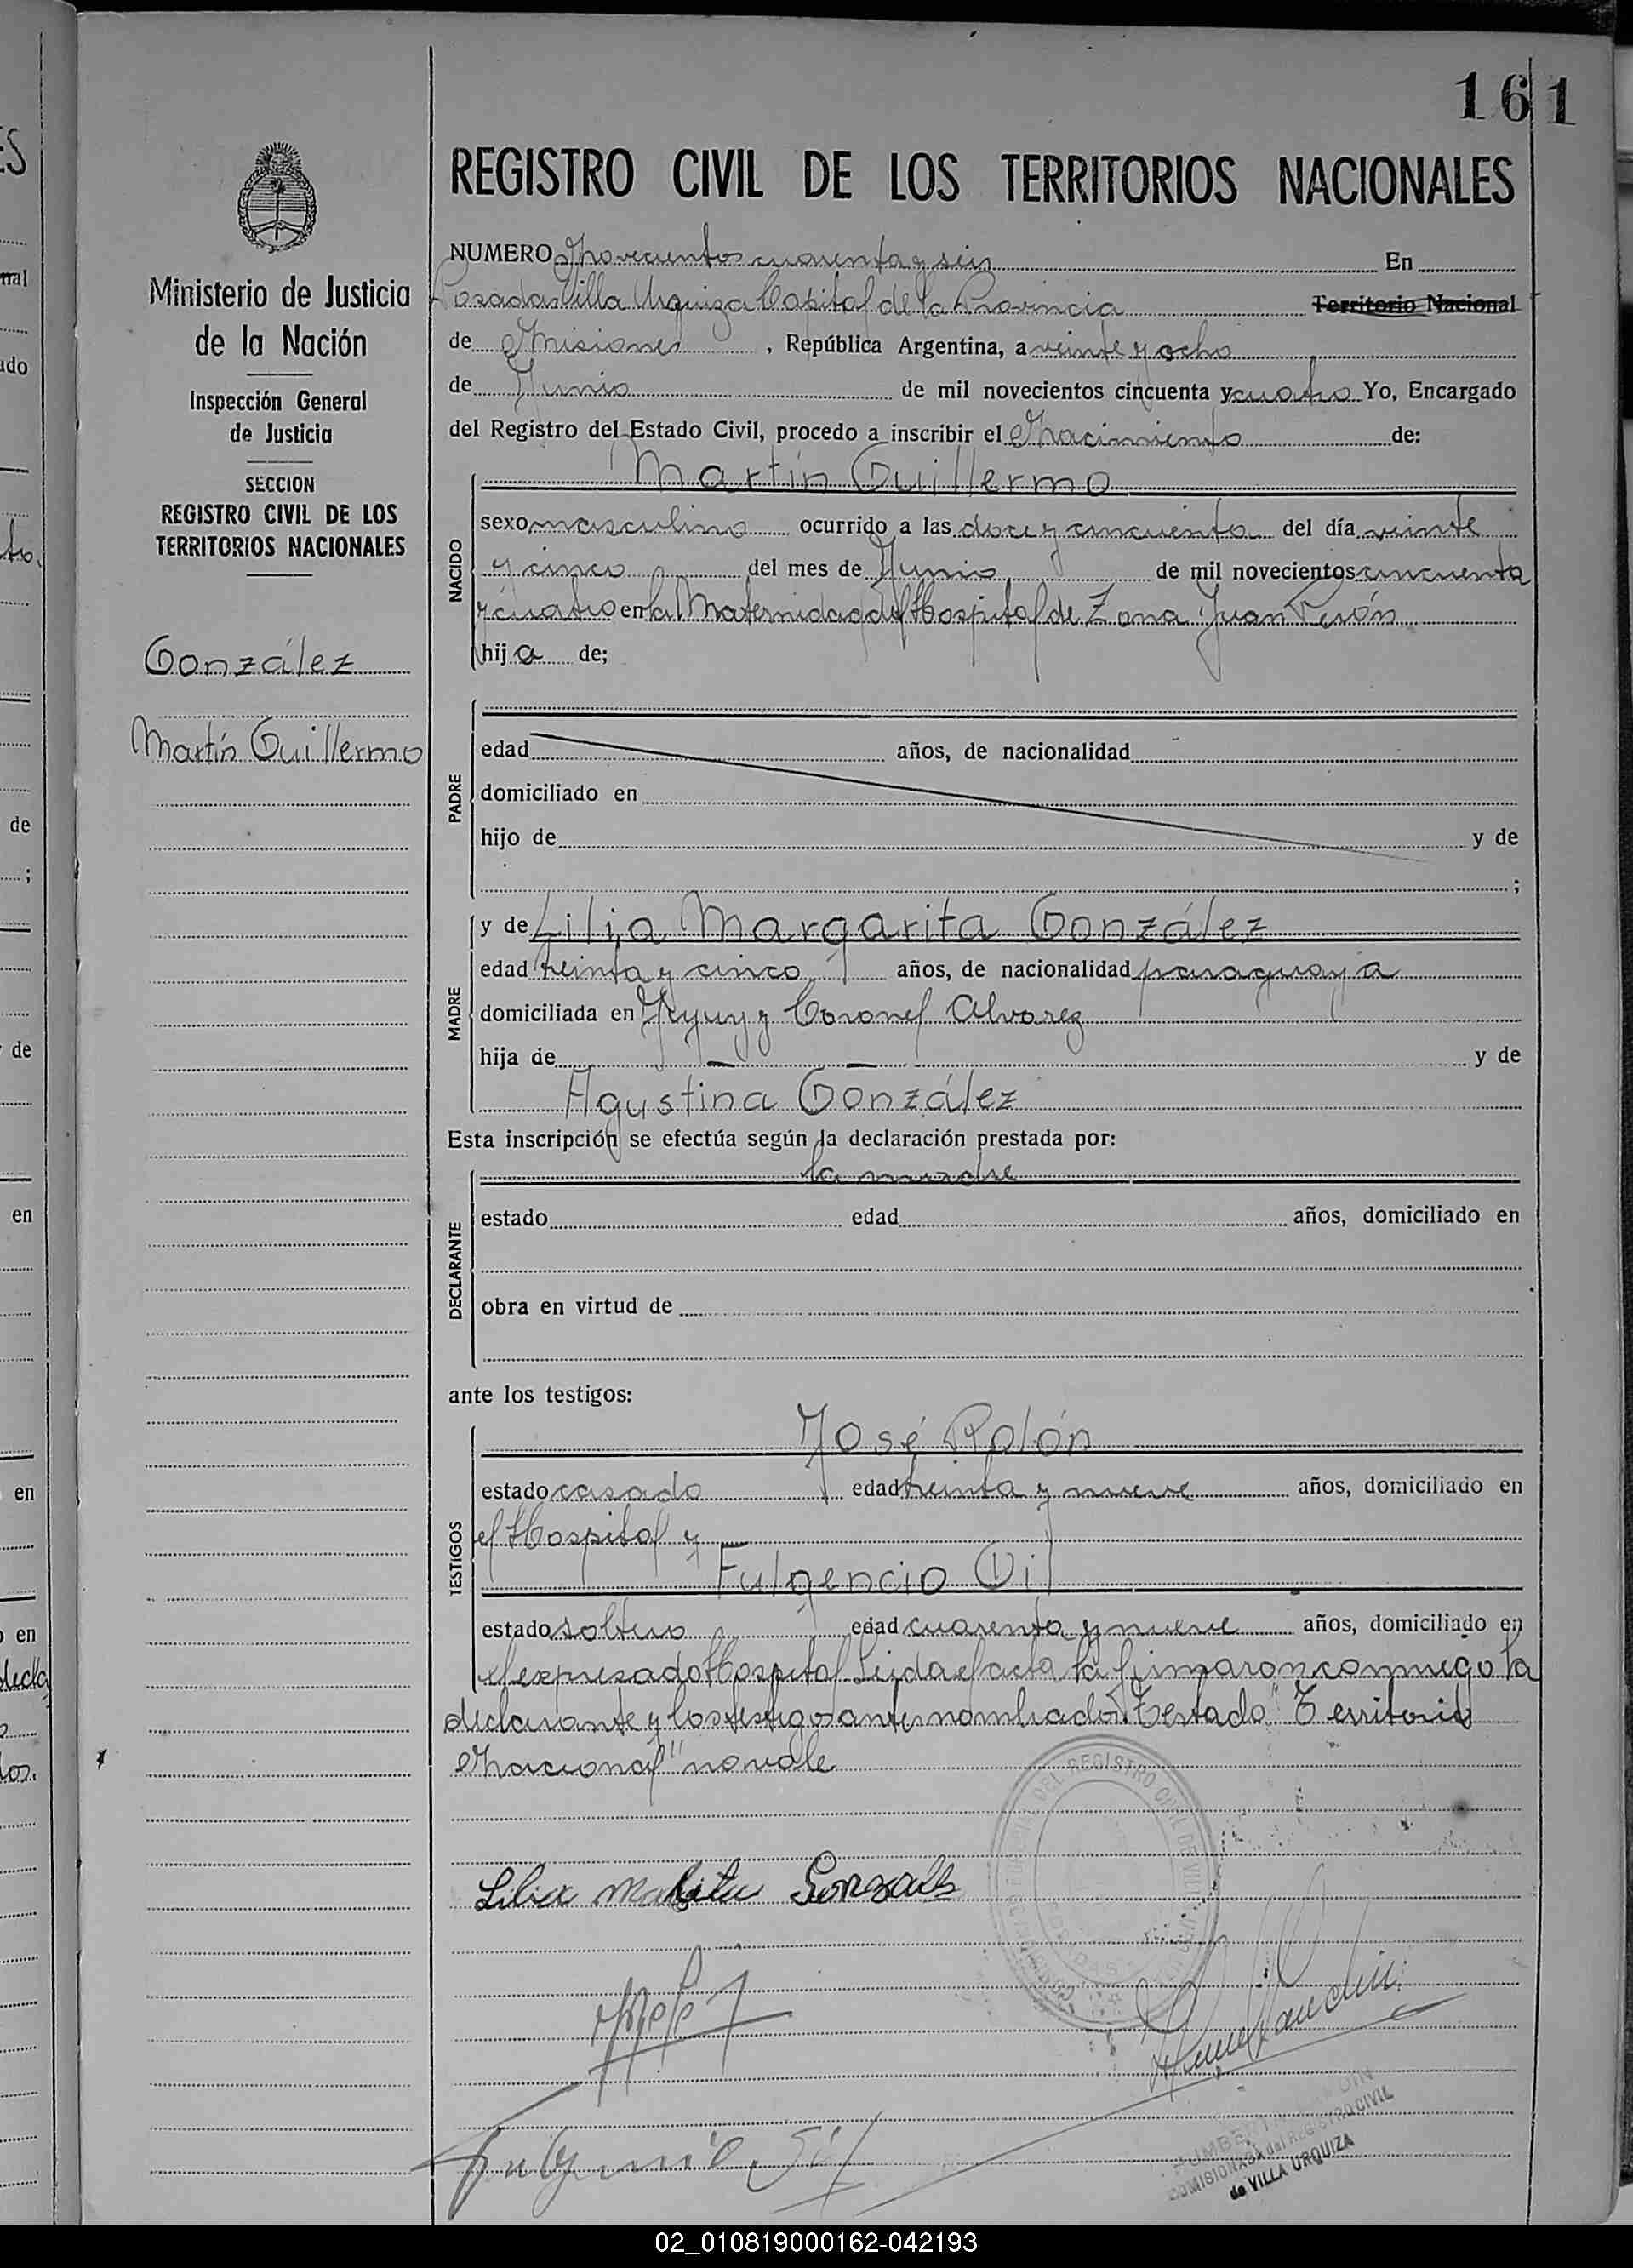 161
REGISTRO CIVIL DE LOS TERRITORIOS NACIONALES
Ministerio de Justicia
de la Nación
Inspección General
de Justicia
SECCION
REGISTRO CIVIL DE LOS
TERRITORIOS NACIONALES
González
Martín Guillermo
NUMERO Novecientos cuarenta y seis En
Posadas Villa Urquiza Capital de la Provincia Territorio Nacional
de Misiones, República Argentina, a veinte y ocho
de Junio de mil novecientos cincuenta y cuatro Yo, Encargado
del Registro del Estado Civil, procedo a inscribir el Nacimiento de:
Martín Guillermo
NACIDO
sexo masculino ocurrido a las doce y cincuenta del día veinte
y cinco del mes de Junio de mil novecientos cincuenta
y cuatro en la Maternidad del Hospital de Zona Juan Perón
hij a de;
PADRE
edad años, de nacionalidad
domiciliado en
hijo de y de
;
MADRE
y de Lilia Margarita González
edad treinta y cinco años, de nacionalidad paraguaya
domiciliada en Jujuy y Coronel Alvarez
hija de — — y de
Agustina González
Esta inscripción se efectúa según la declaración prestada por:
la madre
DECLARANTE
estado edad años, domiciliado en
obra en virtud de
ante los testigos:
TESTIGOS
José Rolón
estado casado edad treinta y nueve años, domiciliado en
el Hospital y
Fulgencio Gil
estado soltero edad cuarenta y nueve años, domiciliado en
el expresado Hospital Leida el acta la firmaron conmigo la
declarante y los testigos antes nombrados. Testado "Territorio
Nacional" no vale
DEL REGISTRO CIVIL DE VILLA URQUIZA
POSADAS
Gonzales
REGISTRO CIVIL
de VILLA URQUIZA
02_010819000162-042193